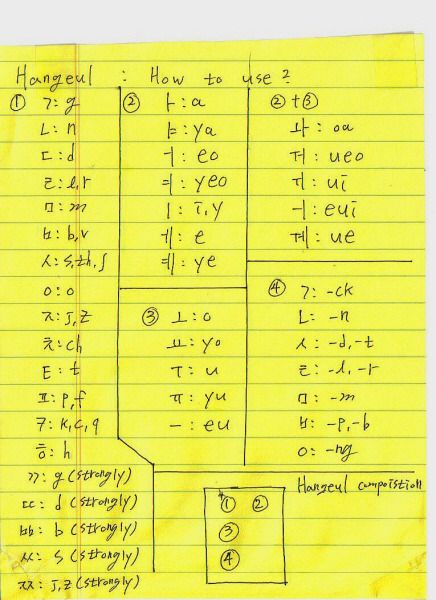 Hangeul : How to use?
① ㄱ: g
ㄴ: n
ㄷ: d
ㄹ: l,r
ㅁ: m
ㅂ: b,v
ㅅ: s,th,ʃ
ㅇ: o
ㅈ: J,Z
ㅊ: ch
ㅌ: t
ㅍ: p,f
ㅋ: k,c,q
ㅎ: h
ㄲ: g (strongly)
ㄸ: d (strongly)
ㅃ: b (strongly)
ㅆ: s (strongly)
ㅉ: J,Z (strongly)
② ㅏ: a
ㅑ: ya
ㅓ: eo
ㅕ: yeo
ㅣ: i,y
ㅔ: e
ㅖ: ye
③ ㅗ: o
ㅛ: yo
ㅜ: u
ㅠ: yu
ㅡ: eu
②+③
ㅘ: oa
ㅝ: ueo
ㅟ: ui
ㅢ: eui
ㅞ: ue
④ ㄱ: -ck
ㄴ: -n
ㅅ: -d,-t
ㄹ: -l,-r
ㅁ: -m
ㅂ: -p,-b
ㅇ: -ng
Hangeul compoistion
① ②
③
④